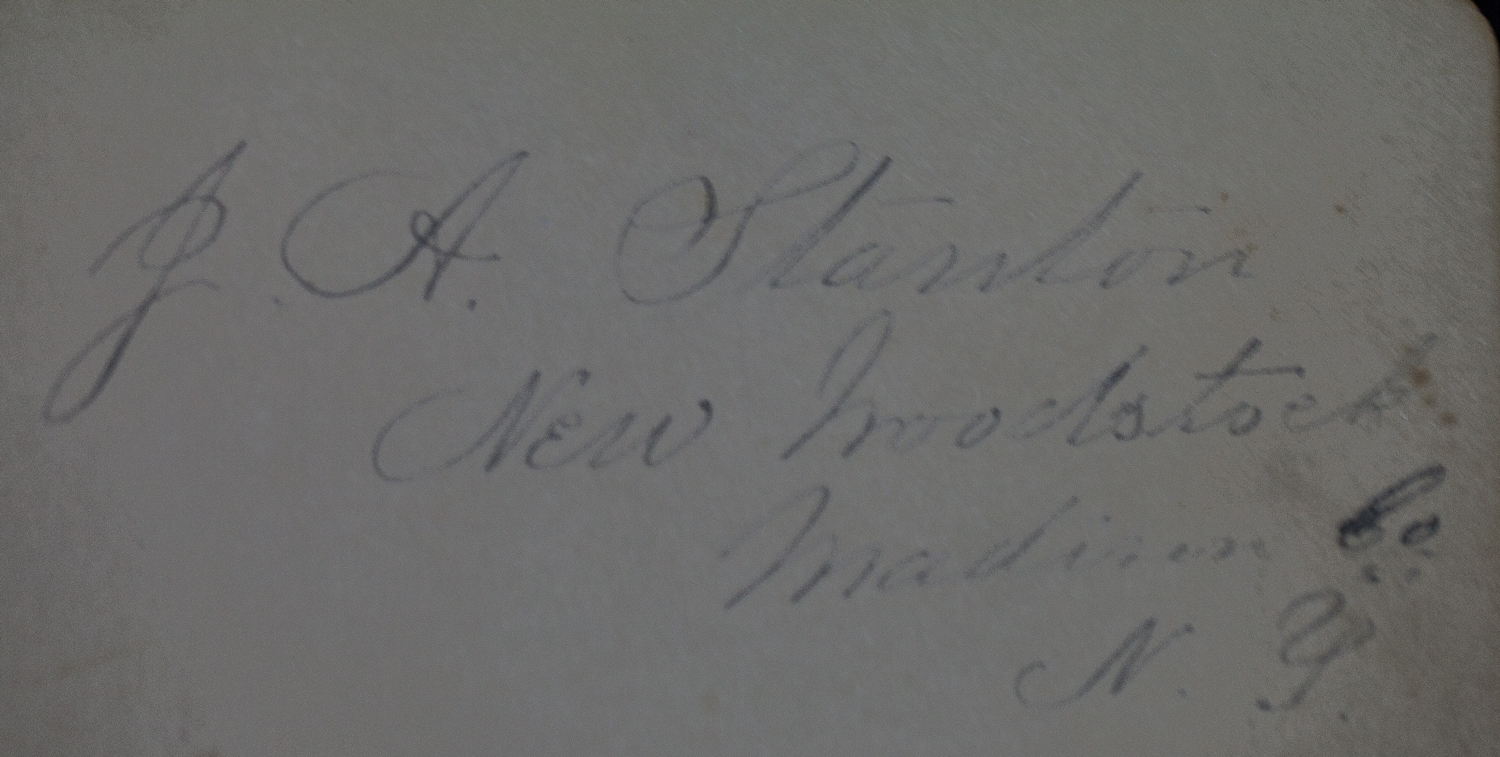 J. A. Stanton
New Woodstock
Madison Co
N. Y.